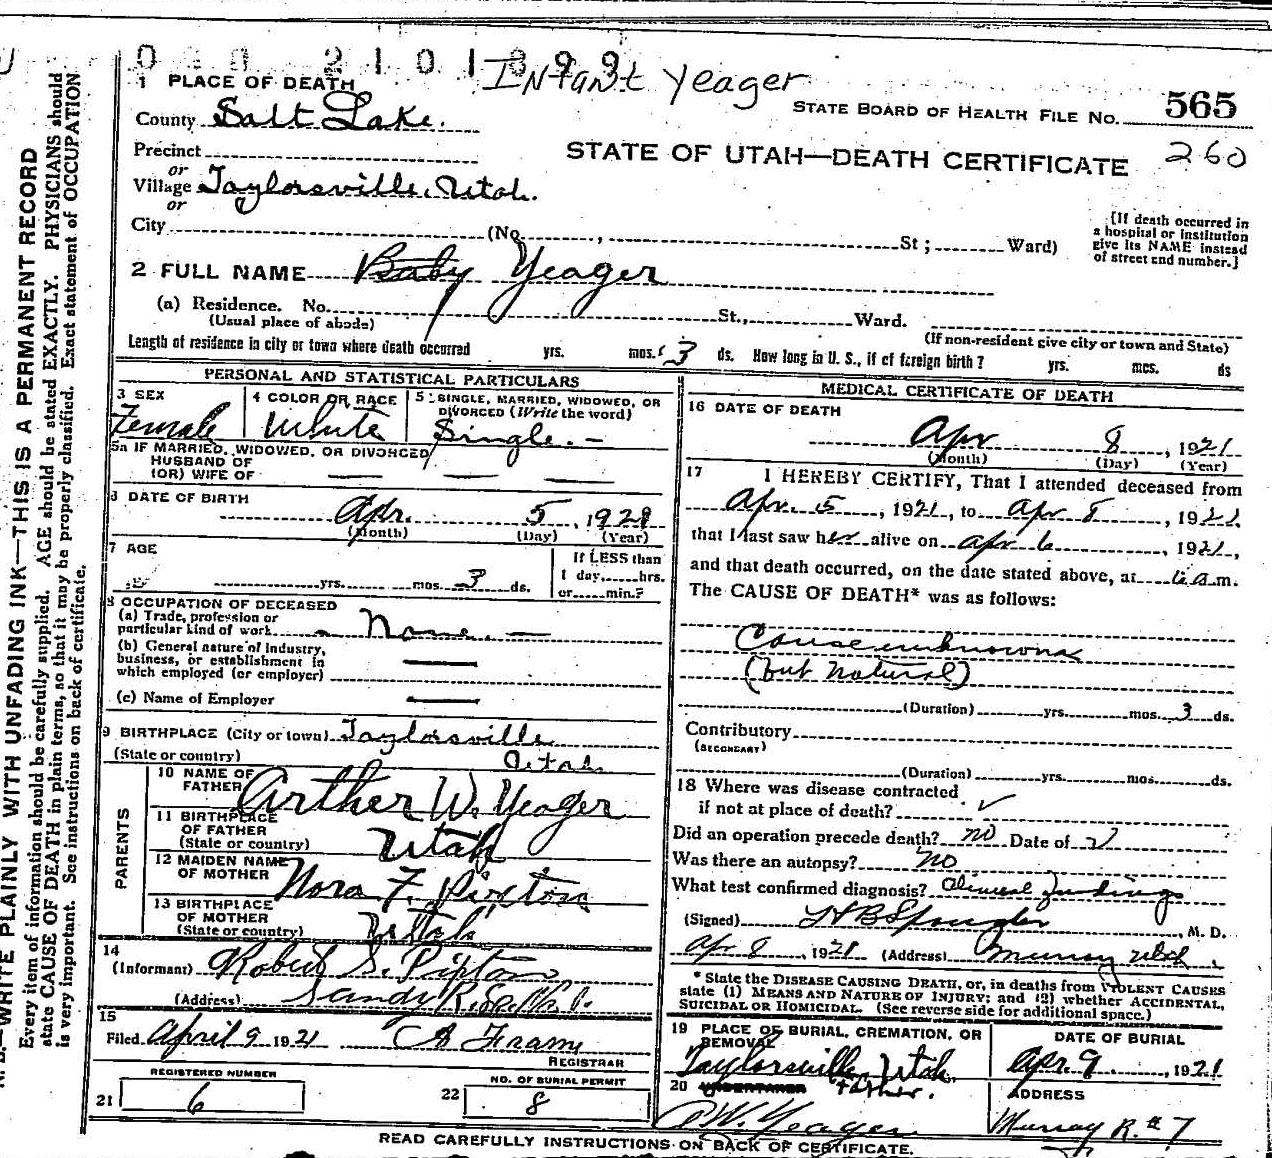 0 0 2 1 0 1 8 9 9
Infant Yeager
1 PLACE OF DEATH
STATE BOARD OF HEALTH FILE No. 565
County Salt Lake.
STATE OF UTAH—DEATH CERTIFICATE 260
Precinct
or
Village Taylorsville, Utah.
or
City (No. , St ; Ward)
[If death occurred in
a hospital or institution
give its NAME instead
of street end number.]
2 FULL NAME Baby Yeager
(a) Residence. No. St., Ward.
(Usual place of abode)
(If non-resident give city or town and State)
Length of residence in city or town where death occurred yrs. mos. 3 ds. How long in U. S., if of foreign birth? yrs. mos. ds
PERSONAL AND STATISTICAL PARTICULARS
3 SEX
Female
4 COLOR OR RACE
White
5 SINGLE, MARRIED, WIDOWED, OR
DIVORCED (Write the word)
Single. —
5a IF MARRIED, WIDOWED, OR DIVORCED
HUSBAND OF
(OR) WIFE OF — — —
6 DATE OF BIRTH
Apr. 5, 1921
(Month) (Day) (Year)
7 AGE
yrs. mos. 3 ds.
If LESS than
1 day, hrs.
or min.?
8 OCCUPATION OF DECEASED
(a) Trade, profession or
particular kind of work None. —
(b) General nature of industry,
business, or establishment in
which employed (or employer) —
(c) Name of Employer —
9 BIRTHPLACE (City or town) Taylorsville
(State or country) Utah
PARENTS
10 NAME OF
FATHER Arther W. Yeager
11 BIRTHPLACE
OF FATHER
(State or country) Utah
12 MAIDEN NAME
OF MOTHER Nora F. Pixton
13 BIRTHPLACE
OF MOTHER
(State or country) Utah
14
(Informant) Robert S. Pixton
(Address) Sandy R.
15
Filed April 9 1921
REGISTRAR
REGISTERED NUMBER
21 6
NO. OF BURIAL PERMIT
22 8
MEDICAL CERTIFICATE OF DEATH
16 DATE OF DEATH
Apr 8, 1921
(Month) (Day) (Year)
17 I HEREBY CERTIFY, That I attended deceased from
Apr. 5, 1921, to Apr 8, 1921.
that I last saw her alive on Apr 6, 1921,
and that death occurred, on the date stated above, at 6 a.m.
The CAUSE OF DEATH* was as follows:
Cause unknown
(but natural)
(Duration) yrs. mos. 3 ds.
Contributory
(SECONDARY)
(Duration) yrs. mos. ds.
18 Where was disease contracted
if not at place of death? ✓
Did an operation precede death? no Date of ✓
Was there an autopsy? no
What test confirmed diagnosis? Clinical findings
(Signed) H B Spengler, M. D.
Apr 8, 1921 (Address) Murray Utah.
* State the DISEASE CAUSING DEATH, or, in deaths from VIOLENT CAUSES
state (1) MEANS AND NATURE OF INJURY; and (2) whether ACCIDENTAL,
SUICIDAL OR HOMICIDAL. (See reverse side for additional space.)
19 PLACE OF BURIAL, CREMATION, OR
REMOVAL
Taylorsville, Utah
DATE OF BURIAL
Apr. 9, 1921
20 UNDERTAKER Father.
A W. Yeager
ADDRESS
Murray R. # 7
READ CAREFULLY INSTRUCTIONS ON BACK OF CERTIFICATE.
WRITE PLAINLY WITH UNFADING INK—THIS IS A PERMANENT RECORD
Every item of information should be carefully supplied. AGE should be stated EXACTLY. PHYSICIANS should
state CAUSE OF DEATH in plain terms, so that it may be properly classified. Exact statement of OCCUPATION
is very important. See instructions on back of certificate.